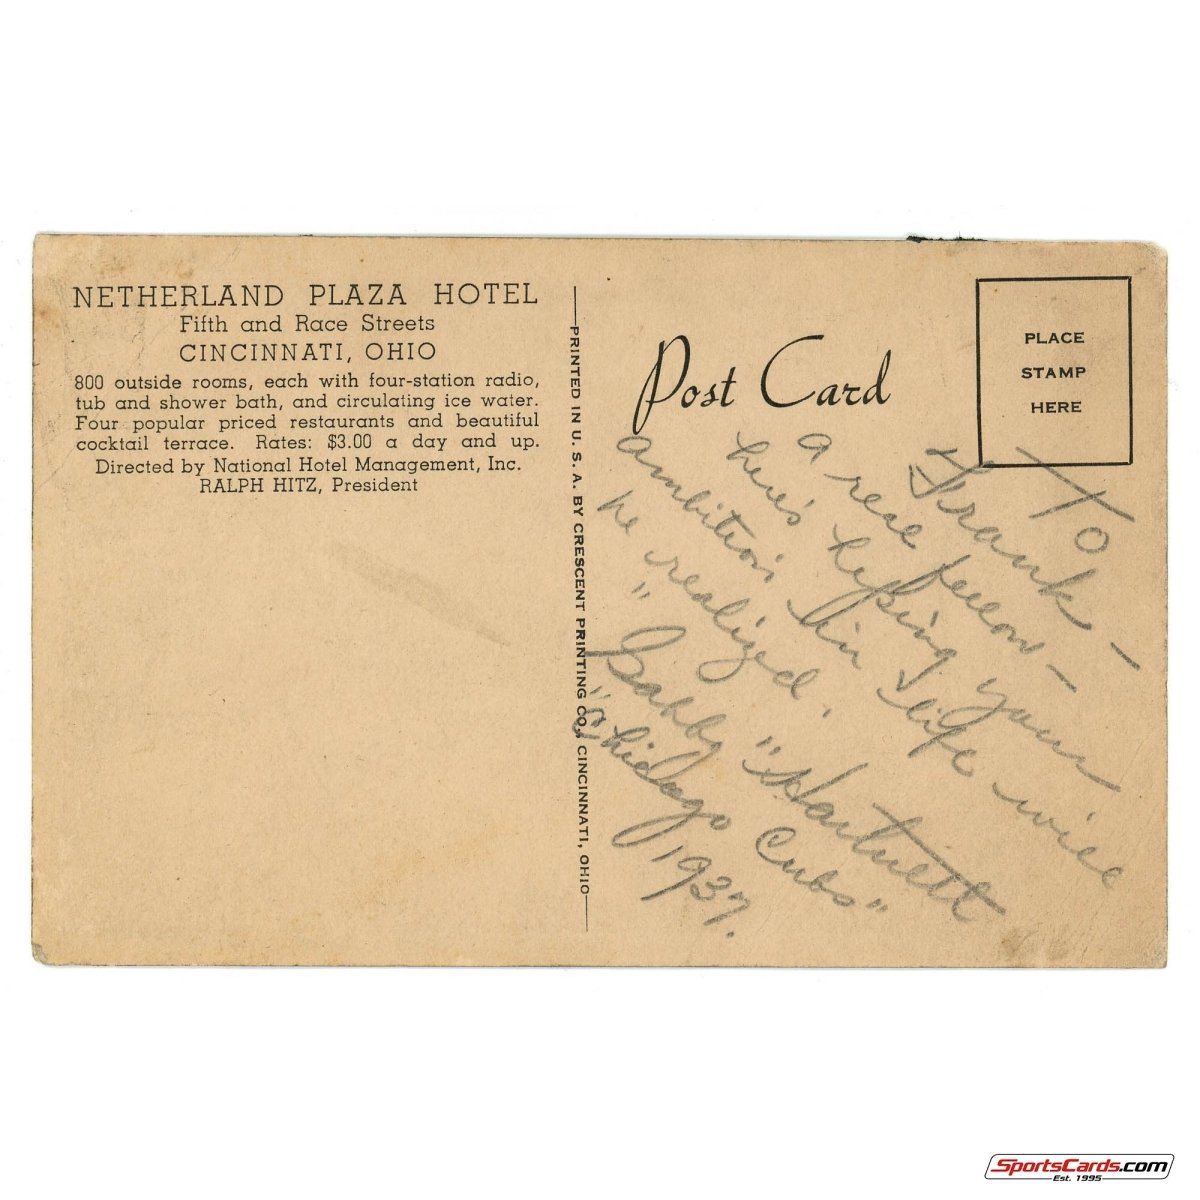 NETHERLAND PLAZA HOTEL
Fifth and Race Streets
CINCINNATI, OHIO
800 outside rooms, each with four-station radio,
tub and shower bath, and circulating ice water.
Four popular priced restaurants and beautiful
cocktail terrace. Rates: $3.00 a day and up.
Directed by National Hotel Management, Inc.
RALPH HITZ, President
PRINTED IN U. S. A. BY CRESCENT PRINTING CO., CINCINNATI, OHIO
Post Card
PLACE
STAMP
HERE
To
Frank -
a real fellow -
here's hoping your
ambition in life will
be realized.
"Gabby" Hartnett
"Chicago Cubs"
1937.
SportsCards.com
Est. 1995